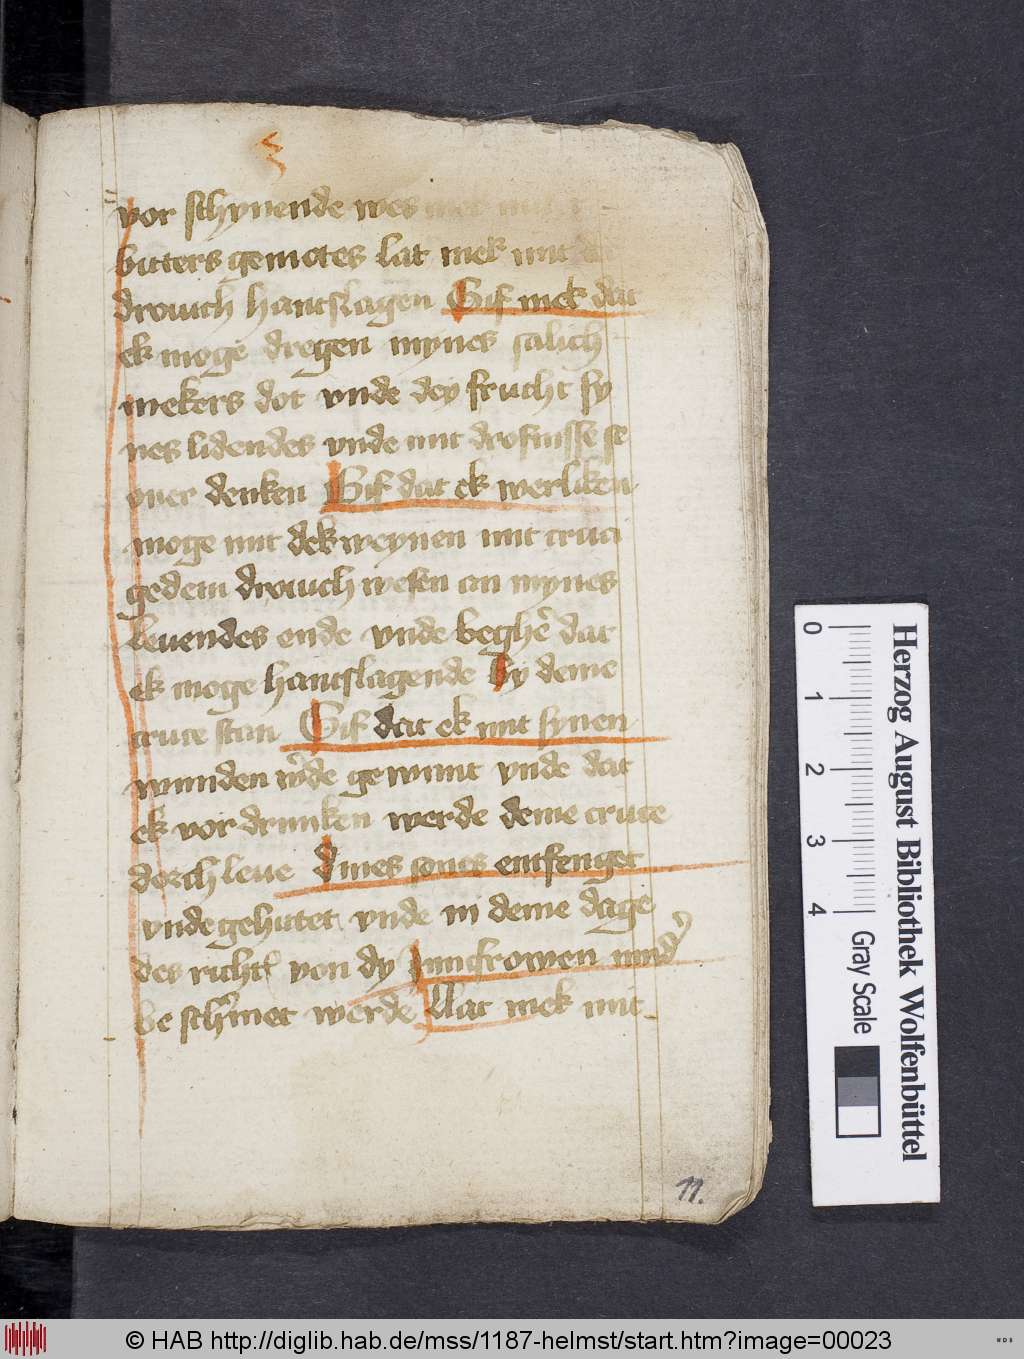 vor schynende wes
bitters gemotes lat mek mit
drouich hantslagen Gif mek dat
ek moge dregen mynes salich
mekers dot vnde dey frucht sy
nes lidendes vnde mit drofnisse se
uuer denken Gif dat ek werliken
moge mit dek weynen mit cruci
gedem drouich wesen an mynes
leuendes ende vnde beghe dat
ek moge hantslagende by deme
cruce stan Gif dat ek mit synen
wunden wde gewunt vnde dat
ek vor drunken werde deme cruce
dorch leue dines sones entfenget
vnde gehutet vnde in deme dage
des richt von dy Juncfrowen
be schmet werde Lat mek mit
11.
Herzog August Bibliothek Wolfenbüttel
0 1 2 3 4 Gray Scale
© HAB http://diglib.hab.de/mss/1187-helmst/start.htm?image=00023